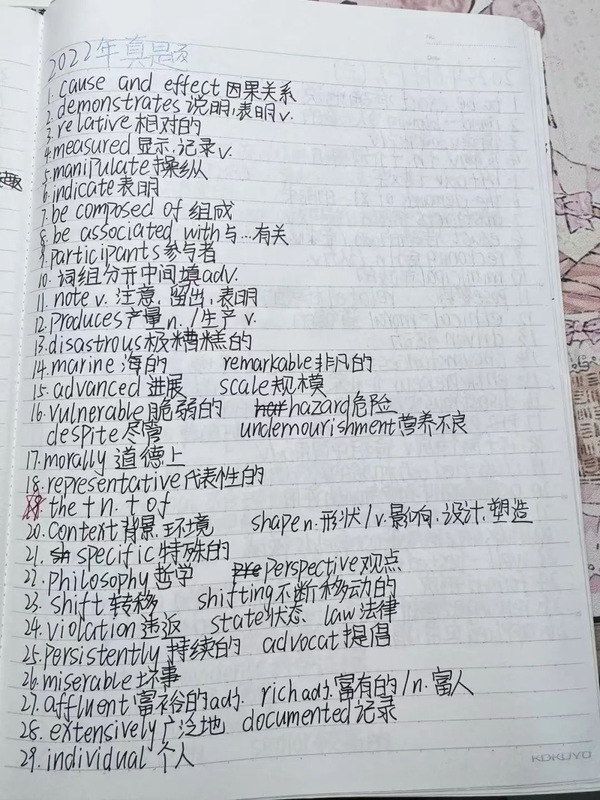 2022年真题
1. cause and effect 因果关系
2. demonstrates 说明,表明 v.
3. relative 相对的
4. measured 显示,记录 v.
5. manipulate 操纵
6. indicate 表明
7. be composed of 组成
8. be associated with 与…有关
9. participants 参与者
10. 词组分开中间填adv.
11. note v. 注意,留出,表明
12. produces 产量 n. / 生产 v.
13. disastrous 极糟糕的
14. marine 海的 remarkable 非凡的
15. advanced 进展 scale 规模
16. vulnerable 脆弱的 hazard 危险
despite 尽管 undernourishment 营养不良
17. morally 道德上
18. representative 代表性的
19. the + n. + of
20. context 背景,环境 shape n. 形状 / v. 影响,设计,塑造
21. specific 特殊的
22. philosophy 哲学 perspective 观点
23. shift 转移 shifting 不断移动的
24. violation 违返 state 状态 law 法律
25. persistently 持续的 advocat 提倡
26. miserable 坏事
27. affluent 富裕的 adj. rich adj. 富有的 / n. 富人
28. extensively 广泛地 documented 记录
29. individual 个人
KOKUYO